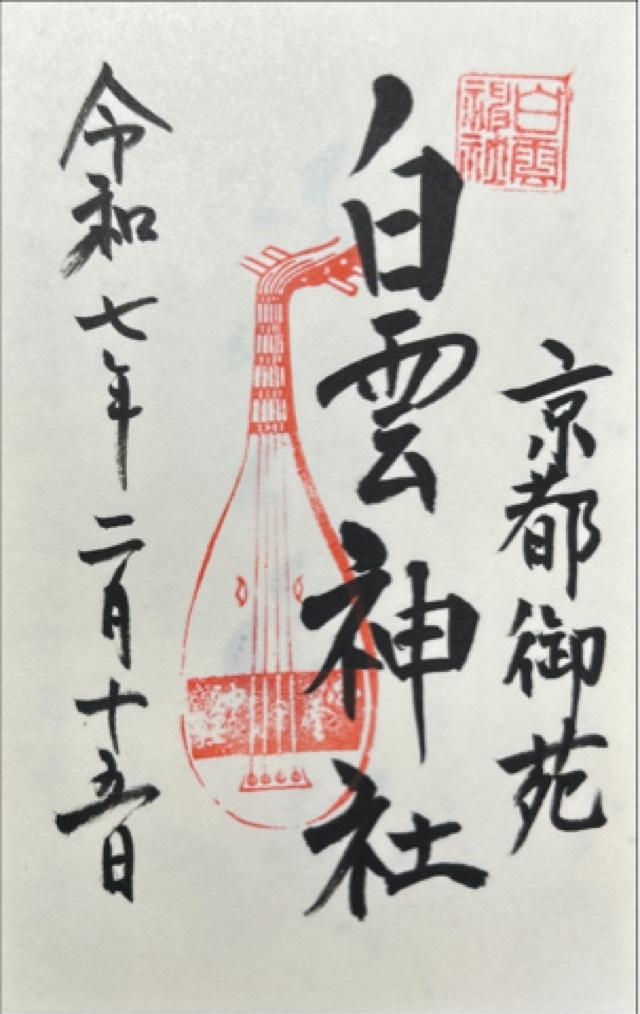 白雲神社
京都御苑
白雲神社
令和七年二月十五日